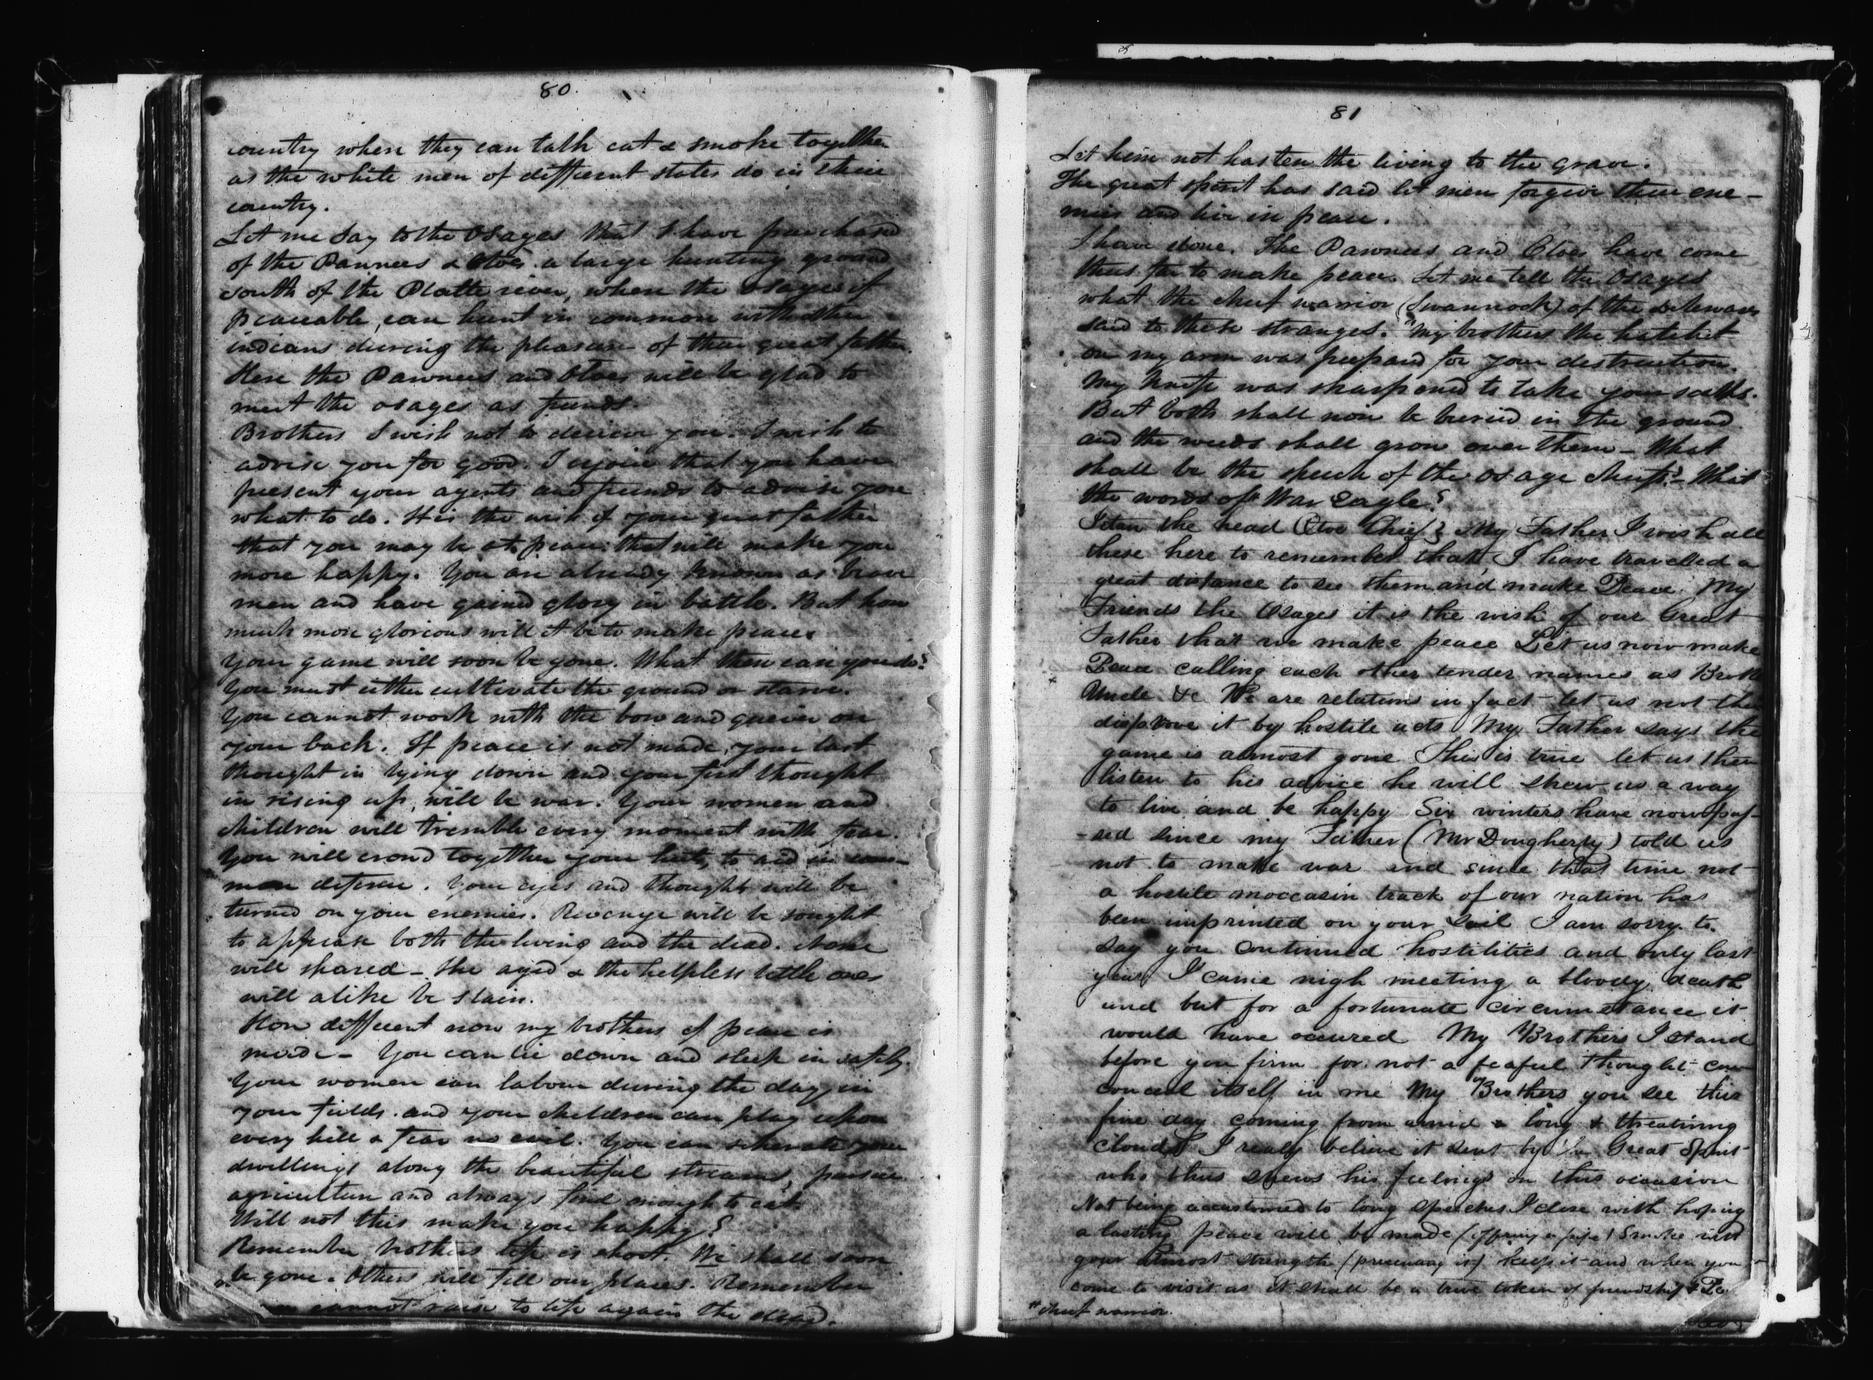 80.
country when they can talk eat & smoke together
as the white men of different states do in their
country.
Let me say to the Osages that I have purchased
of the Pawnees & Otoes a large hunting ground
south of the Platte river, where the Osages if
peaceable, can hunt in common with other
indians during the pleasure of their great father.
Here the Pawnees and Otoes will be glad to
meet the Osages as friends.
Brothers I wish not to deceive you. I wish to
advise you for good. I rejoice that you have
present your agents and friends to advise you
what to do. It is the wish of your great father
that you may be at peace; that will make you
more happy. You are already known as brave
men and have gained glory in battle. But how
much more glorious will it be to make peace.
Your game will soon be gone. What then can you do?
You must either cultivate the ground or starve.
You cannot work with the bow and quiver on
your back. If peace is not made, your last
thought in lying down and your first thought
in rising up, will be war. Your women and
children will tremble every moment with fear.
You will crowd together your huts, to aid in com-
mon defense. Your eyes and thoughts will be
turned on your enemies. Revenge will be sought
to appease both the living and the dead. None
will shared – the aged & the helpless little ones
will alike be slain.
How different now my brothers if peace is
made – You can lie down and sleep in safety.
Your women can labour during the day in
your fields and your children can play upon
every hill & fear no evil. You can scherete your
dwellings along the beautiful streams, pursue
agriculture and always find enough to eat.
Will not this make you happy?
Remember brothers life is short. We shall soon
be gone. Others will fill our places. Remember
cannot raise to life again the dead.
81
Let him not hasten the living to the grave.
The great spirit has said let men forgive their ene-
mies and live in peace.
I have done. The Pawnees and Otoes have come
thus far to make peace. Let me tell the Osages
what the chief warrior (Swannock) of the Delawares
said to these strangers. "My brothers the hatchet
on my arm was prepared for your destruction.
My knife was sharpened to take your scalps.
But both shall now be buried in the ground
and the weeds shall grow over them – What
shall be the speech of the Osage chiefs? – What
the words of * War Eagle?
Itan the head (Otoe Chief) My Father I wish all
these here to remember that I have travelled a
great distance to see them and make Peace. My
Friends the Osages it is the wish of our Great
Father that we make peace Let us now make
Peace calling each other tender names as Broth
Uncle &c We are relations in fact let us not then
disprove it by hostile acts My Father says the
game is almost gone This is true let us then
listen to his advice he will shew us a way
to live and be happy Six winters have now pas-
-sed since my Father (Mr Dougherty) told us
not to make war and since that time not
a hostile moccasin track of our nation has
been imprinted on your Soil I am sorry to
say you continued hostilities and only last
year I came nigh meeting a bloody death
and but for a fortunate circumstance it
would have occured My Brothers I stand
before you firm for not a feaful thought can
conceal itself in me My Brothers you see this
fine day coming from amid a long & threatning
cloud I realy believe it sent by the Great Spirit
who thus shews his feelings on this occasion
Not being accustomed to long speeches I close with hoping
a lasting peace will be made (offering a pipe) Smoke with
your utmost strength (presenting it) keep it and when you
come to visit us it shall be a true token of friendship &
* chief warrior.